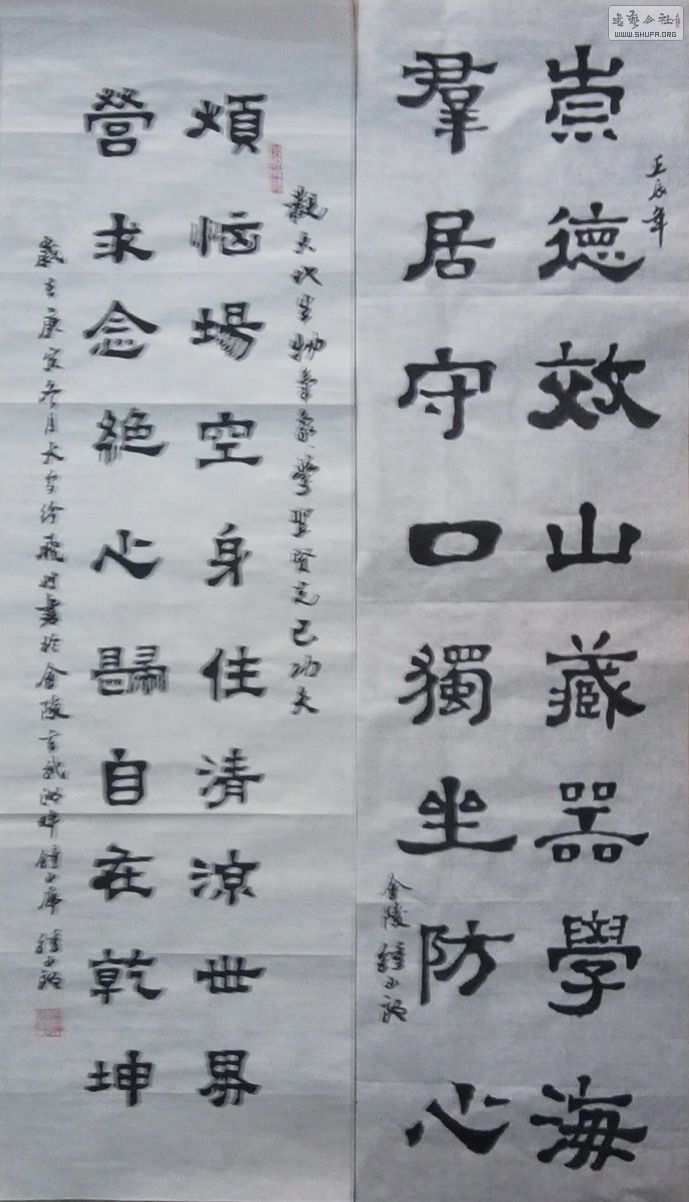 壬辰年
崇德效山藏器學海
羣居守口獨坐防心
金陵鐘
觀天地生物氣象學聖賢克己功夫
煩惱場空身住清涼世界
營求念絕心歸自在乾坤
歲在庚寅冬月大雪紛飛時書於金陵玄武湖畔
書藝公社
WWW.SHUFA.ORG